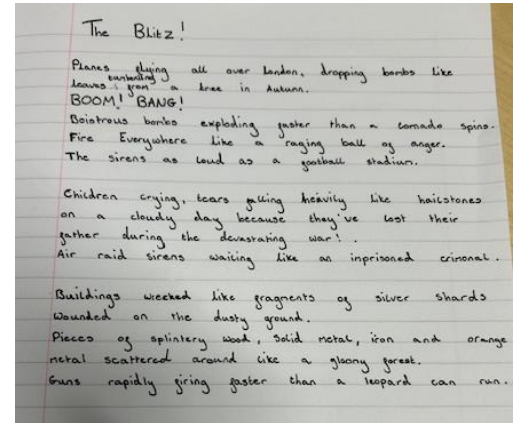 The Blitz!
Planes flying all over London, dropping bombs like
leaves tumbling from a tree in Autumn.
BOOM! BANG!
Boistrous bombs exploding faster than a tornado spins.
Fire Everywhere like a raging ball of anger.
The sirens as loud as a football stadium.
Children crying, tears falling heavily like hailstones
on a cloudy day because they've lost their
father during the devastating war!.
Air raid sirens wailing like an inprisoned crimonal.
Buildings wrecked like fragments of silver shards
wounded on the dusty ground.
Pieces of splintery wood, solid metal, iron and orange
metal scattered around like a gloomy forest.
Guns rapidly firing faster than a leopard can run.